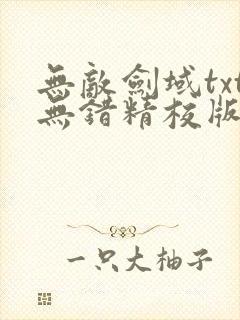 無敵劍域txt
無錯精校版
一只大柚子